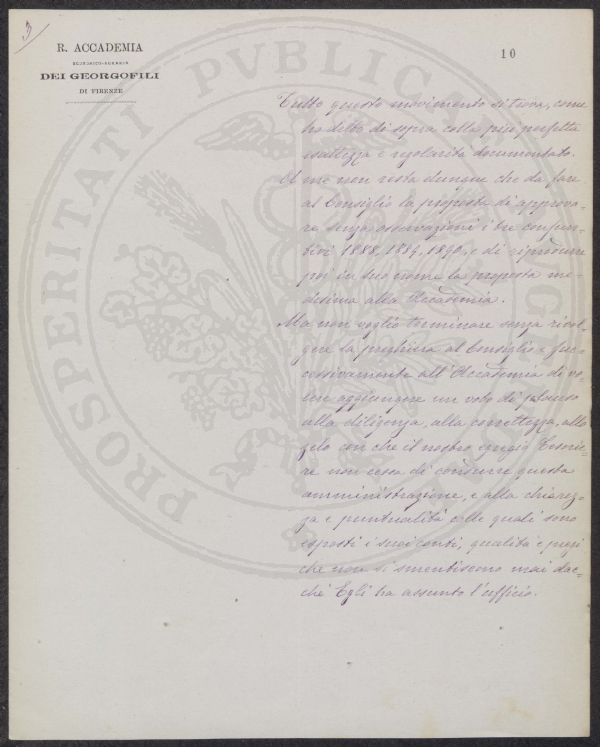 3
R. ACCADEMIA
ECONOMICO-AGRARIA
DEI GEORGOFILI
DI FIRENZE
10
PROSPERITATI PVBLICAE AVGENDAE
Tutto questo movimento si trova, come
ho detto di sopra colla più perfetta
esattezza e regolarità documentato.
A me non resta dunque che da fare
al Consiglio la proposta di approva=
re senza osservazioni i tre consun=
tivi 1888, 1889, 1890, e di riprodurre
poi in suo nome la proposta me=
desima alla Accademia.
Ma non voglio terminare senza rivol=
gere la preghiera al Consiglio e suc=
cessivamente all'Accademia di vo=
ler aggiungere un voto di plauso
alla diligenza, alla correttezza, allo
zelo con che il nostro egregio Tesorie=
re non cessa di condurre questa
amministrazione, e alla chiarez=
za e puntualità colle quali sono
esposti i suoi conti, qualità e pregi
che non si smentiscono mai dac=
ché Egli ha assunto l'ufficio.